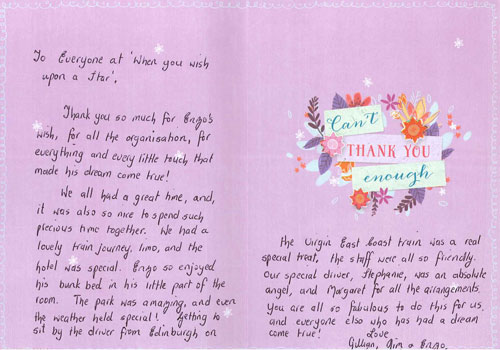 To Everyone at 'When you wish
upon a Star',
Thank you so much for Enzo's
wish, for all the organisation, for
everything and every little touch that
made his dream come true!
We all had a great time, and,
it was also so nice to spend such
precious time together. We had a
lovely train journey, limo, and the
hotel was special. Enzo so enjoyed
his bunk bed in his little part of the
room. The park was amazing, and even
the weather held special! Getting to
sit by the driver from Edinburgh on
Can't
THANK YOU
enough
the Virgin East Coast train was a real
special treat, the staff were all so friendly.
Our special driver, Stephanie, was an absolute
angel, and Margaret for all the arrangements.
You are all so fabulous to do this for us
and everyone else who has had a dream
come true! Love
Gillian, Jim & Enzo.